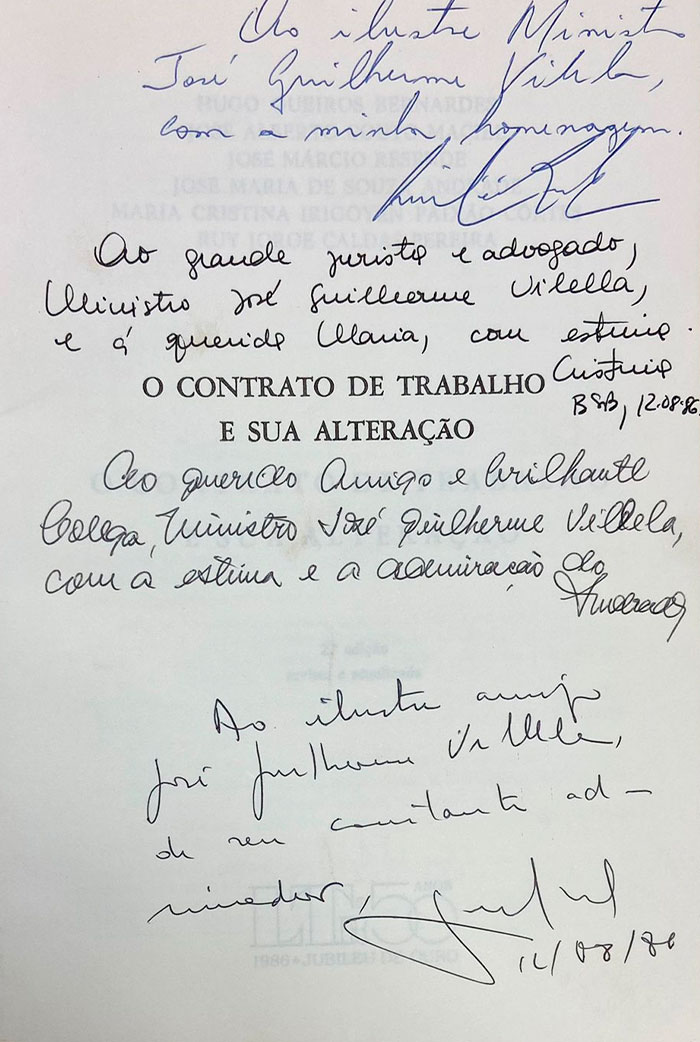 Ao ilustre Ministro
José Guilherme Vilela,
com a minha homenagem.
HUGO GUEIROS BERNARDES
JOSÉ MÁRCIO RESENDE
JOSE MARIA DE SOUZA ANDRADE
MARIA CRISTINA IRIGOYEN PEIXÃO CÔRTES
RUY JORGE CALDAS PEREIRA
Ao grande jurista e advogado,
Ministro José Guilherme Vilella,
e à querida Maria, com estima.
Cristina
BSB, 12.08.86.
O CONTRATO DE TRABALHO
E SUA ALTERAÇÃO
Ao querido Amigo e brilhante
Colega, Ministro José Guilherme Villela,
com a estima e a admiração do
Andrade
2ª edição
Ao ilustre amigo
José Guilherme Villela,
de seu constante ad-
mirador,
12/08/86
LTr 50 ANOS
1986 • JUBILEU DE OURO